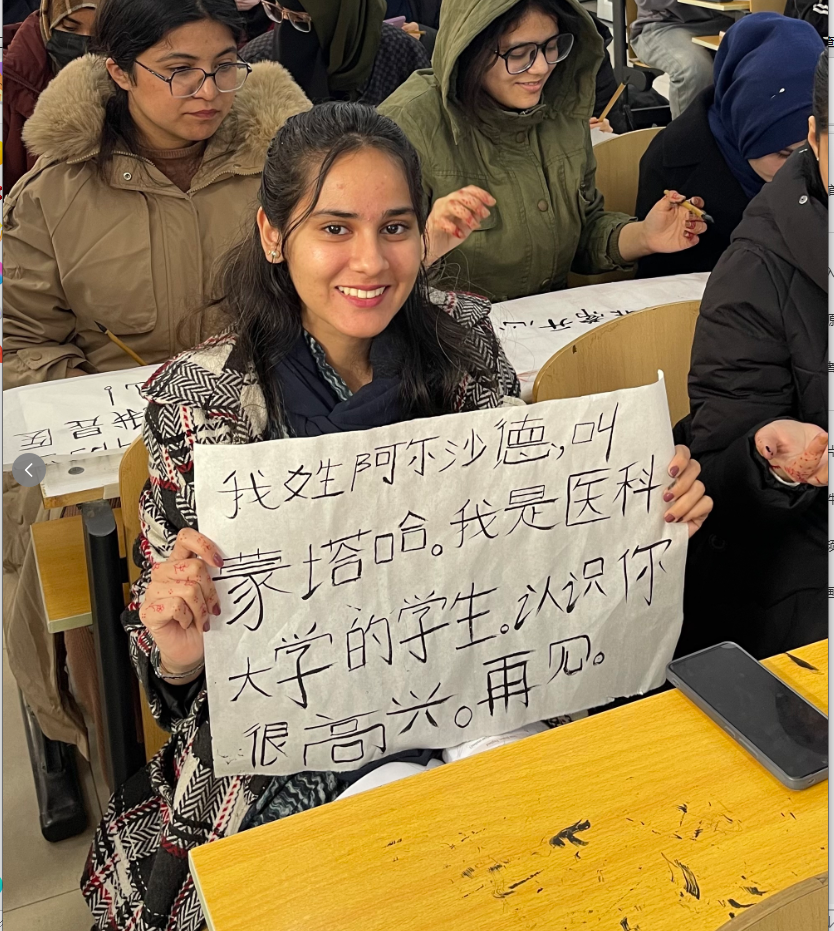 我姓阿尔沙德,叫
蒙塔哈。我是医科
大学的学生。认识你
很高兴。再见。
我是医
开心